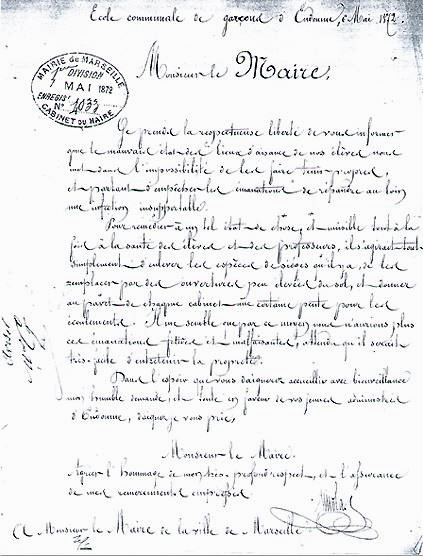 Ecole communale de garçons d'Endoume, 6 Mai 1872.
MAIRIE de MARSEILLE
DIVISION
7 MAI 1872
ENREGISt
N° 1033
CABINET DU MAIRE
Monsieur le Maire,
Je prends la respectueuse liberté de vous informer
que le mauvais état des lieux d'aisance de nos élèves nous
met dans l'impossibilité de les faire tenir propres,
et partant d'empêcher les émanations de répandre au loin
une infection insupportable.
Pour remédier à un tel état de chose, et nuisible tout à la
fois à la santé des élèves et des professeurs, il s'agirait tout
simplement d'enlever les espèces de sièges qu'il y a, de les
remplacer par des ouvertures peu élevées du sol, et donner
au pavét de chaque cabinet une certaine pente pour les
écoulements. Il me semble que par ce moyen nous n'aurions plus
ces émanations fétides et malfaisantes, attendu qu'il serait
très facile d'entretenir la propreté.
Dans l'espoir que vous daignerez accueillir avec bienveillance
mon humble demande, et toute en faveur de vos jeunes administrés
d'Endoume, daignez je vous prie,
Monsieur le Maire,
Agréer l'hommage de mon très profond respect, et l'assurance
de mes remerciements empressés
A Monsieur le Maire de la ville de Marseille